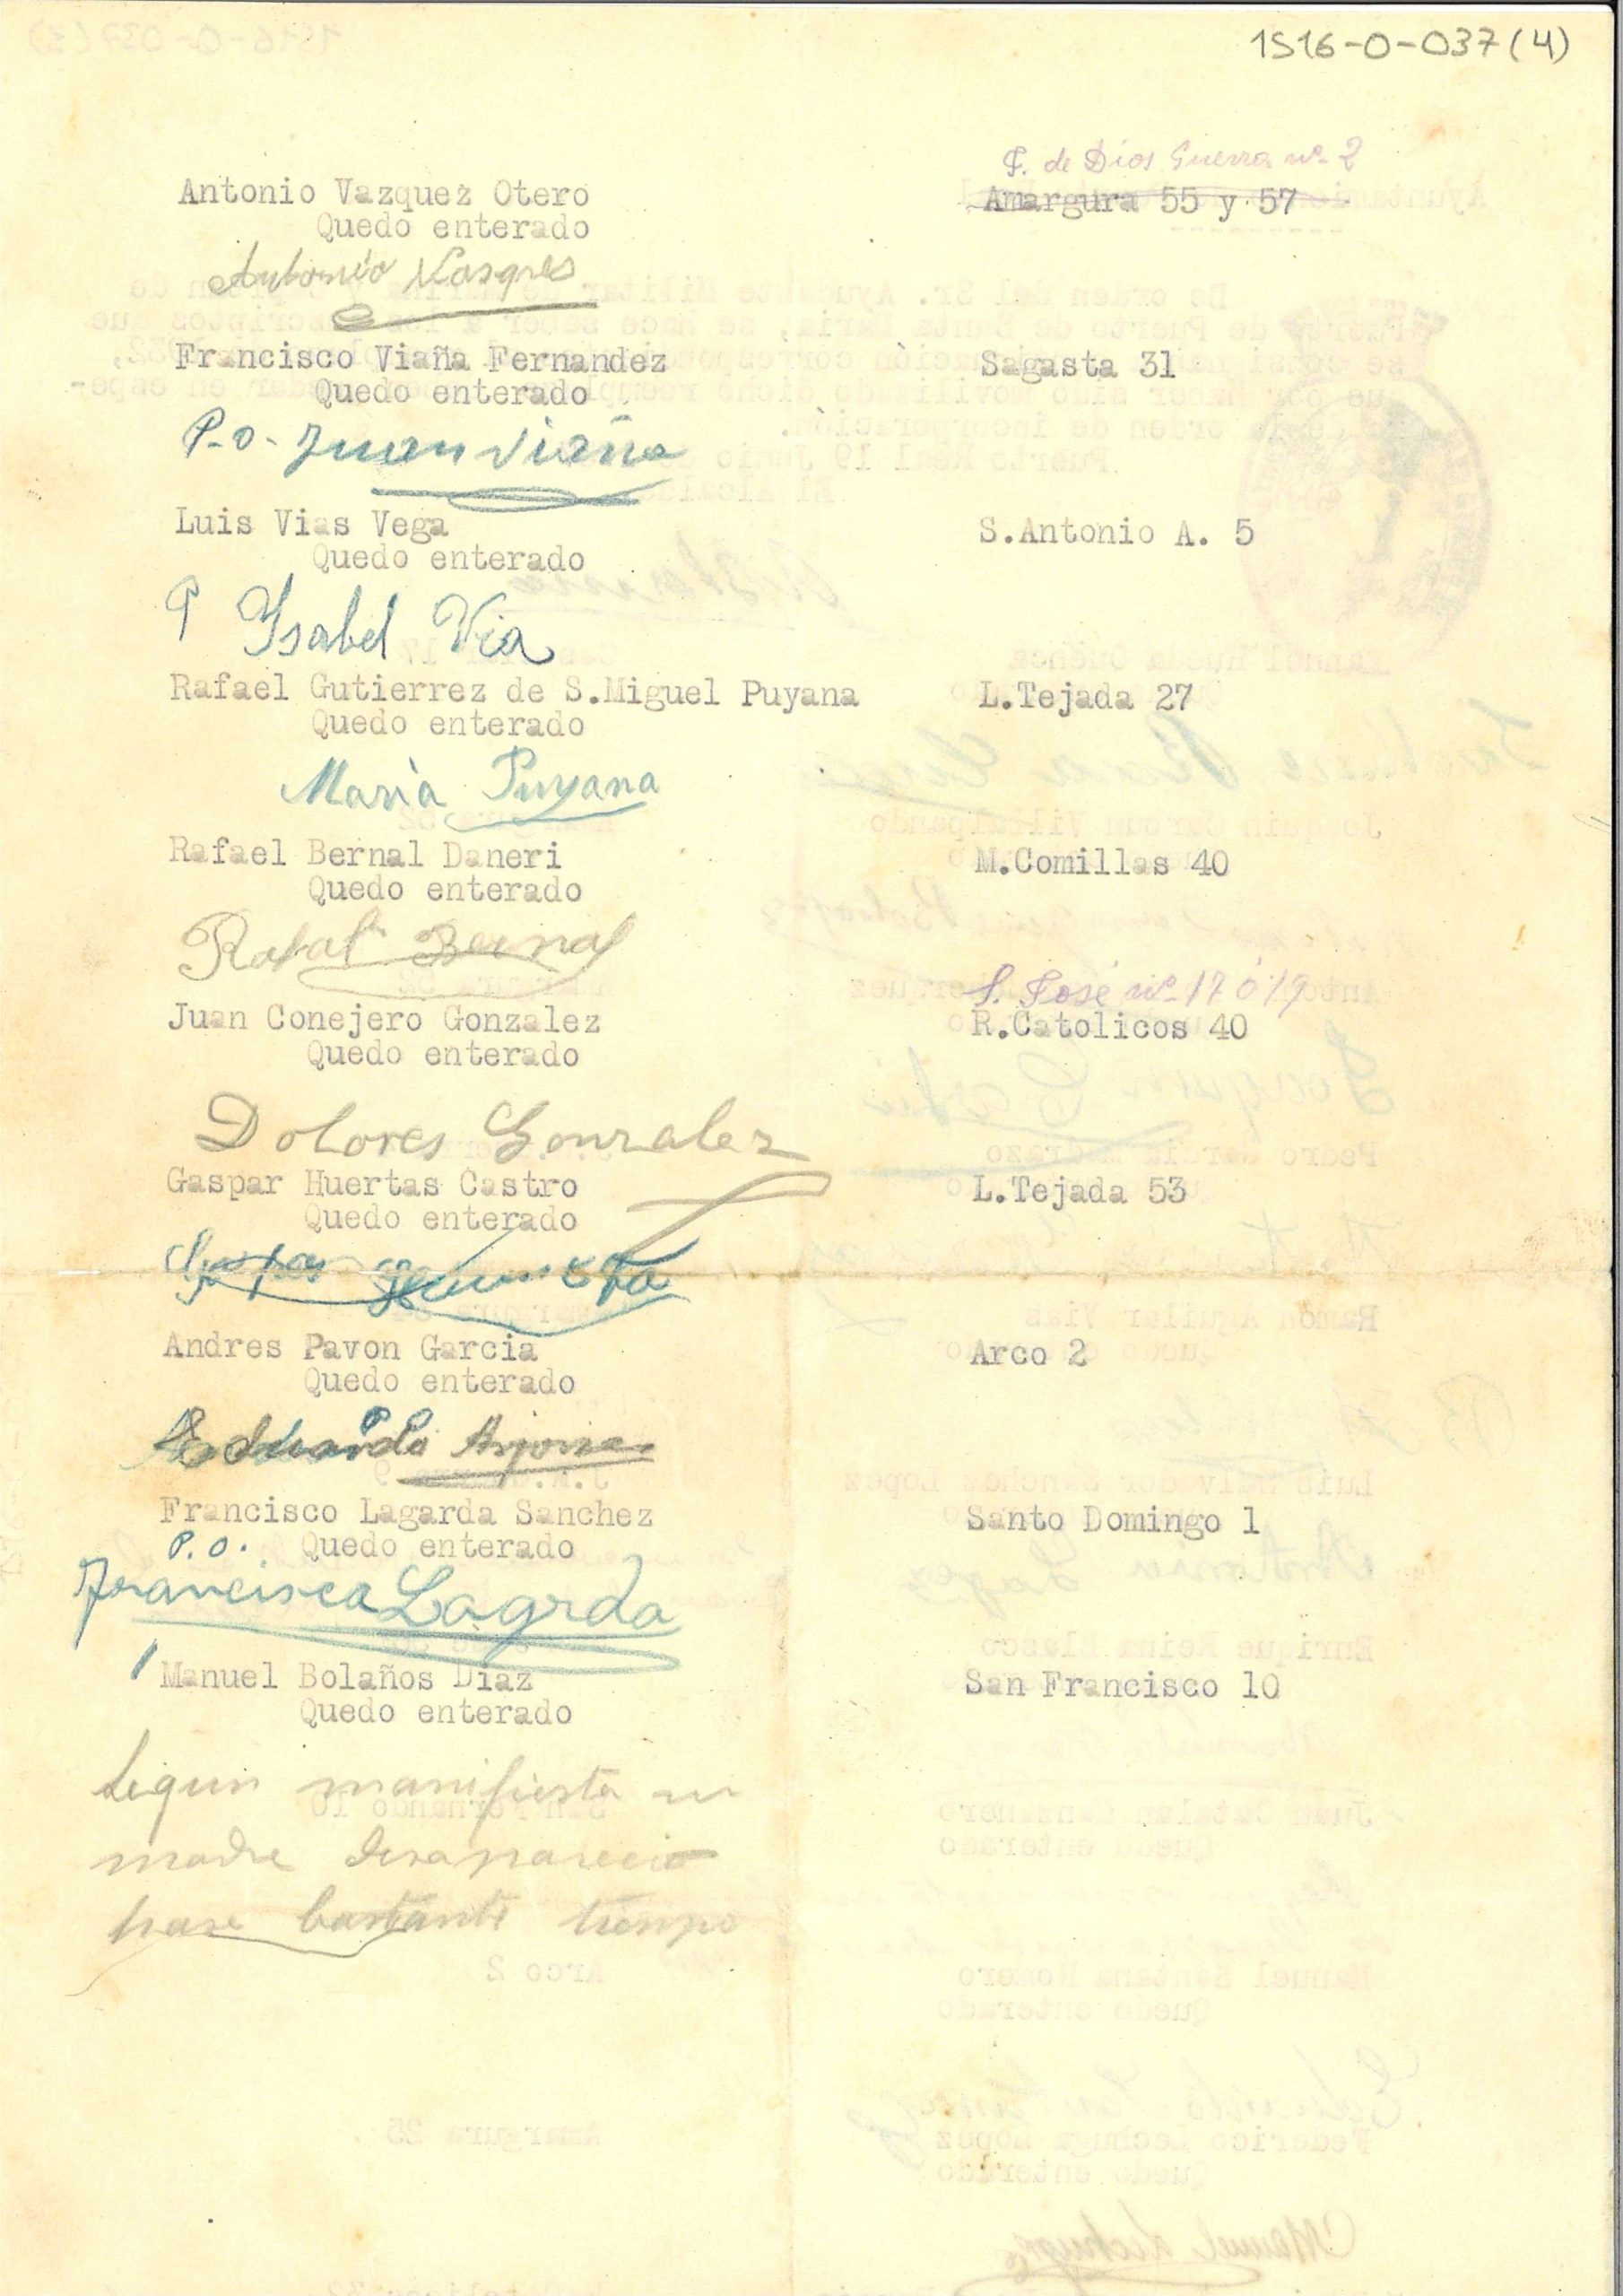 1S16-0-037(4)
J. de Dios Guerra nº 2
Antonio Vazquez Otero Amargura 55 y 57
Quedo enterado
Antonio Vasques
Francisco Viaña Fernandez Sagasta 31
Quedo enterado
P.O. Juan Viaña
Luis Vias Vega S.Antonio A. 5
Quedo enterado
P Ysabel Via
Rafael Gutierrez de S.Miguel Puyana L.Tejada 27
Quedo enterado
Maria Puyana
Rafael Bernal Daneri M.Comillas 40
Quedo enterado
Rafael Bernal
S. José nº 17 ó 19
Juan Conejero Gonzalez R.Catolicos 40
Quedo enterado
Dolores Gonzalez
Gaspar Huertas Castro L.Tejada 53
Quedo enterado
Andres Pavon Garcia Arco 2
Quedo enterado
Eduardo Arjona
Francisco Lagarda Sanchez Santo Domingo 1
P.O. Quedo enterado
Francisca Lagrda
Manuel Bolaños Diaz San Francisco 10
Quedo enterado
Segun manifiesta su
madre desaparecio
hase bastante tiempo